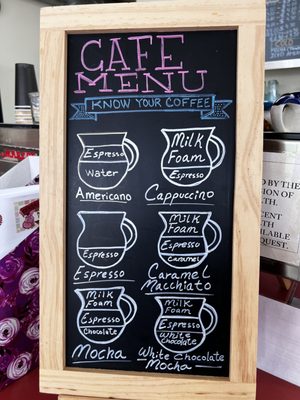 CAFE
MENU
KNOW YOUR COFFEE
Espresso
Water
Americano
Milk
Foam
Espresso
Cappuccino
Espresso
Espresso
Milk
Foam
Espresso
Caramel
Caramel
Macchiato
Milk
Foam
Espresso
Chocolate
Mocha
Milk
Foam
Espresso
White
Chocolate
White Chocolate
Mocha
D BY THE
SION OF
TH.
CENT
H
AVAILABLE
quest.